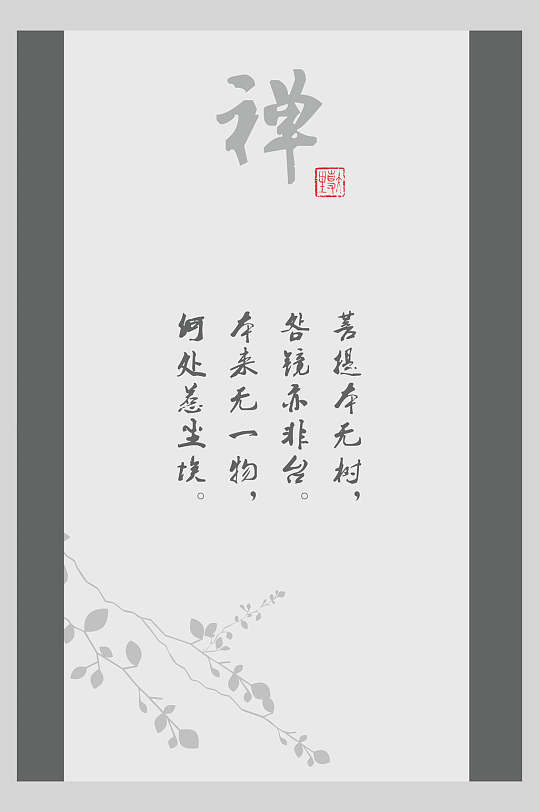 禅
菩提本无树，
镜亦非台。
本来无一物，
何处惹尘埃。